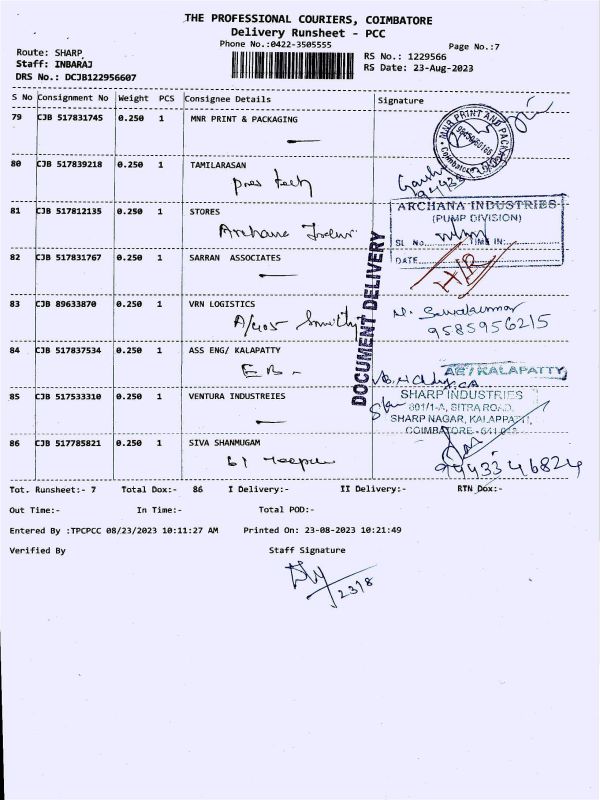 THE PROFESSIONAL COURIERS, COIMBATORE
Delivery Runsheet - PCC
Phone No.:0422-3505555
Page No.:7
Route: SHARP
Staff: INBARAJ
DRS No.: DCJB122956607
RS No.: 1229566
RS Date: 23-Aug-2023
S No Consignment No Weight PCS Consignee Details Signature
79 CJB 517831745 0.250 1 MNR PRINT & PACKAGING
MNR PRINT AND PACK
80 CJB 517839218 0.250 1 TAMILARASAN
81 CJB 517812135 0.250 1 STORES
ARCHANA INDUSTRIES
(PUMP DIVISION)
SL No. TIME IN:
DATE
Archana
82 CJB 517831767 0.250 1 SARRAN ASSOCIATES
DOCUMENT DELIVERY
83 CJB 89633870 0.250 1 VRN LOGISTICS
9585956215
84 CJB 517837534 0.250 1 ASS ENG/ KALAPATTY
EB -
AE / KALAPATTY
85 CJB 517533310 0.250 1 VENTURA INDUSTREIES
SHARP INDUSTRIES
601/1-A, SITRA ROAD,
SHARP NAGAR, KALAPPATTI,
COIMBATORE - 641 048
86 CJB 517785821 0.250 1 SIVA SHANMUGAM
9443346824
Tot. Runsheet:- 7 Total Dox:- 86 I Delivery:- II Delivery:- RTN Dox:-
Out Time:- In Time:- Total POD:-
Entered By :TPCPCC 08/23/2023 10:11:27 AM Printed On: 23-08-2023 10:21:49
Verified By Staff Signature
23/8